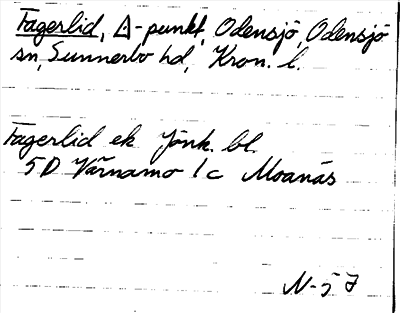 Fagerlid, △-punkt, Odensjö, Odensjö
sn, Sunnerbo hd, Kron. l.
Fagerlid ek Jönk. bl.
5D Värnamo 1c Moanäs
N-57